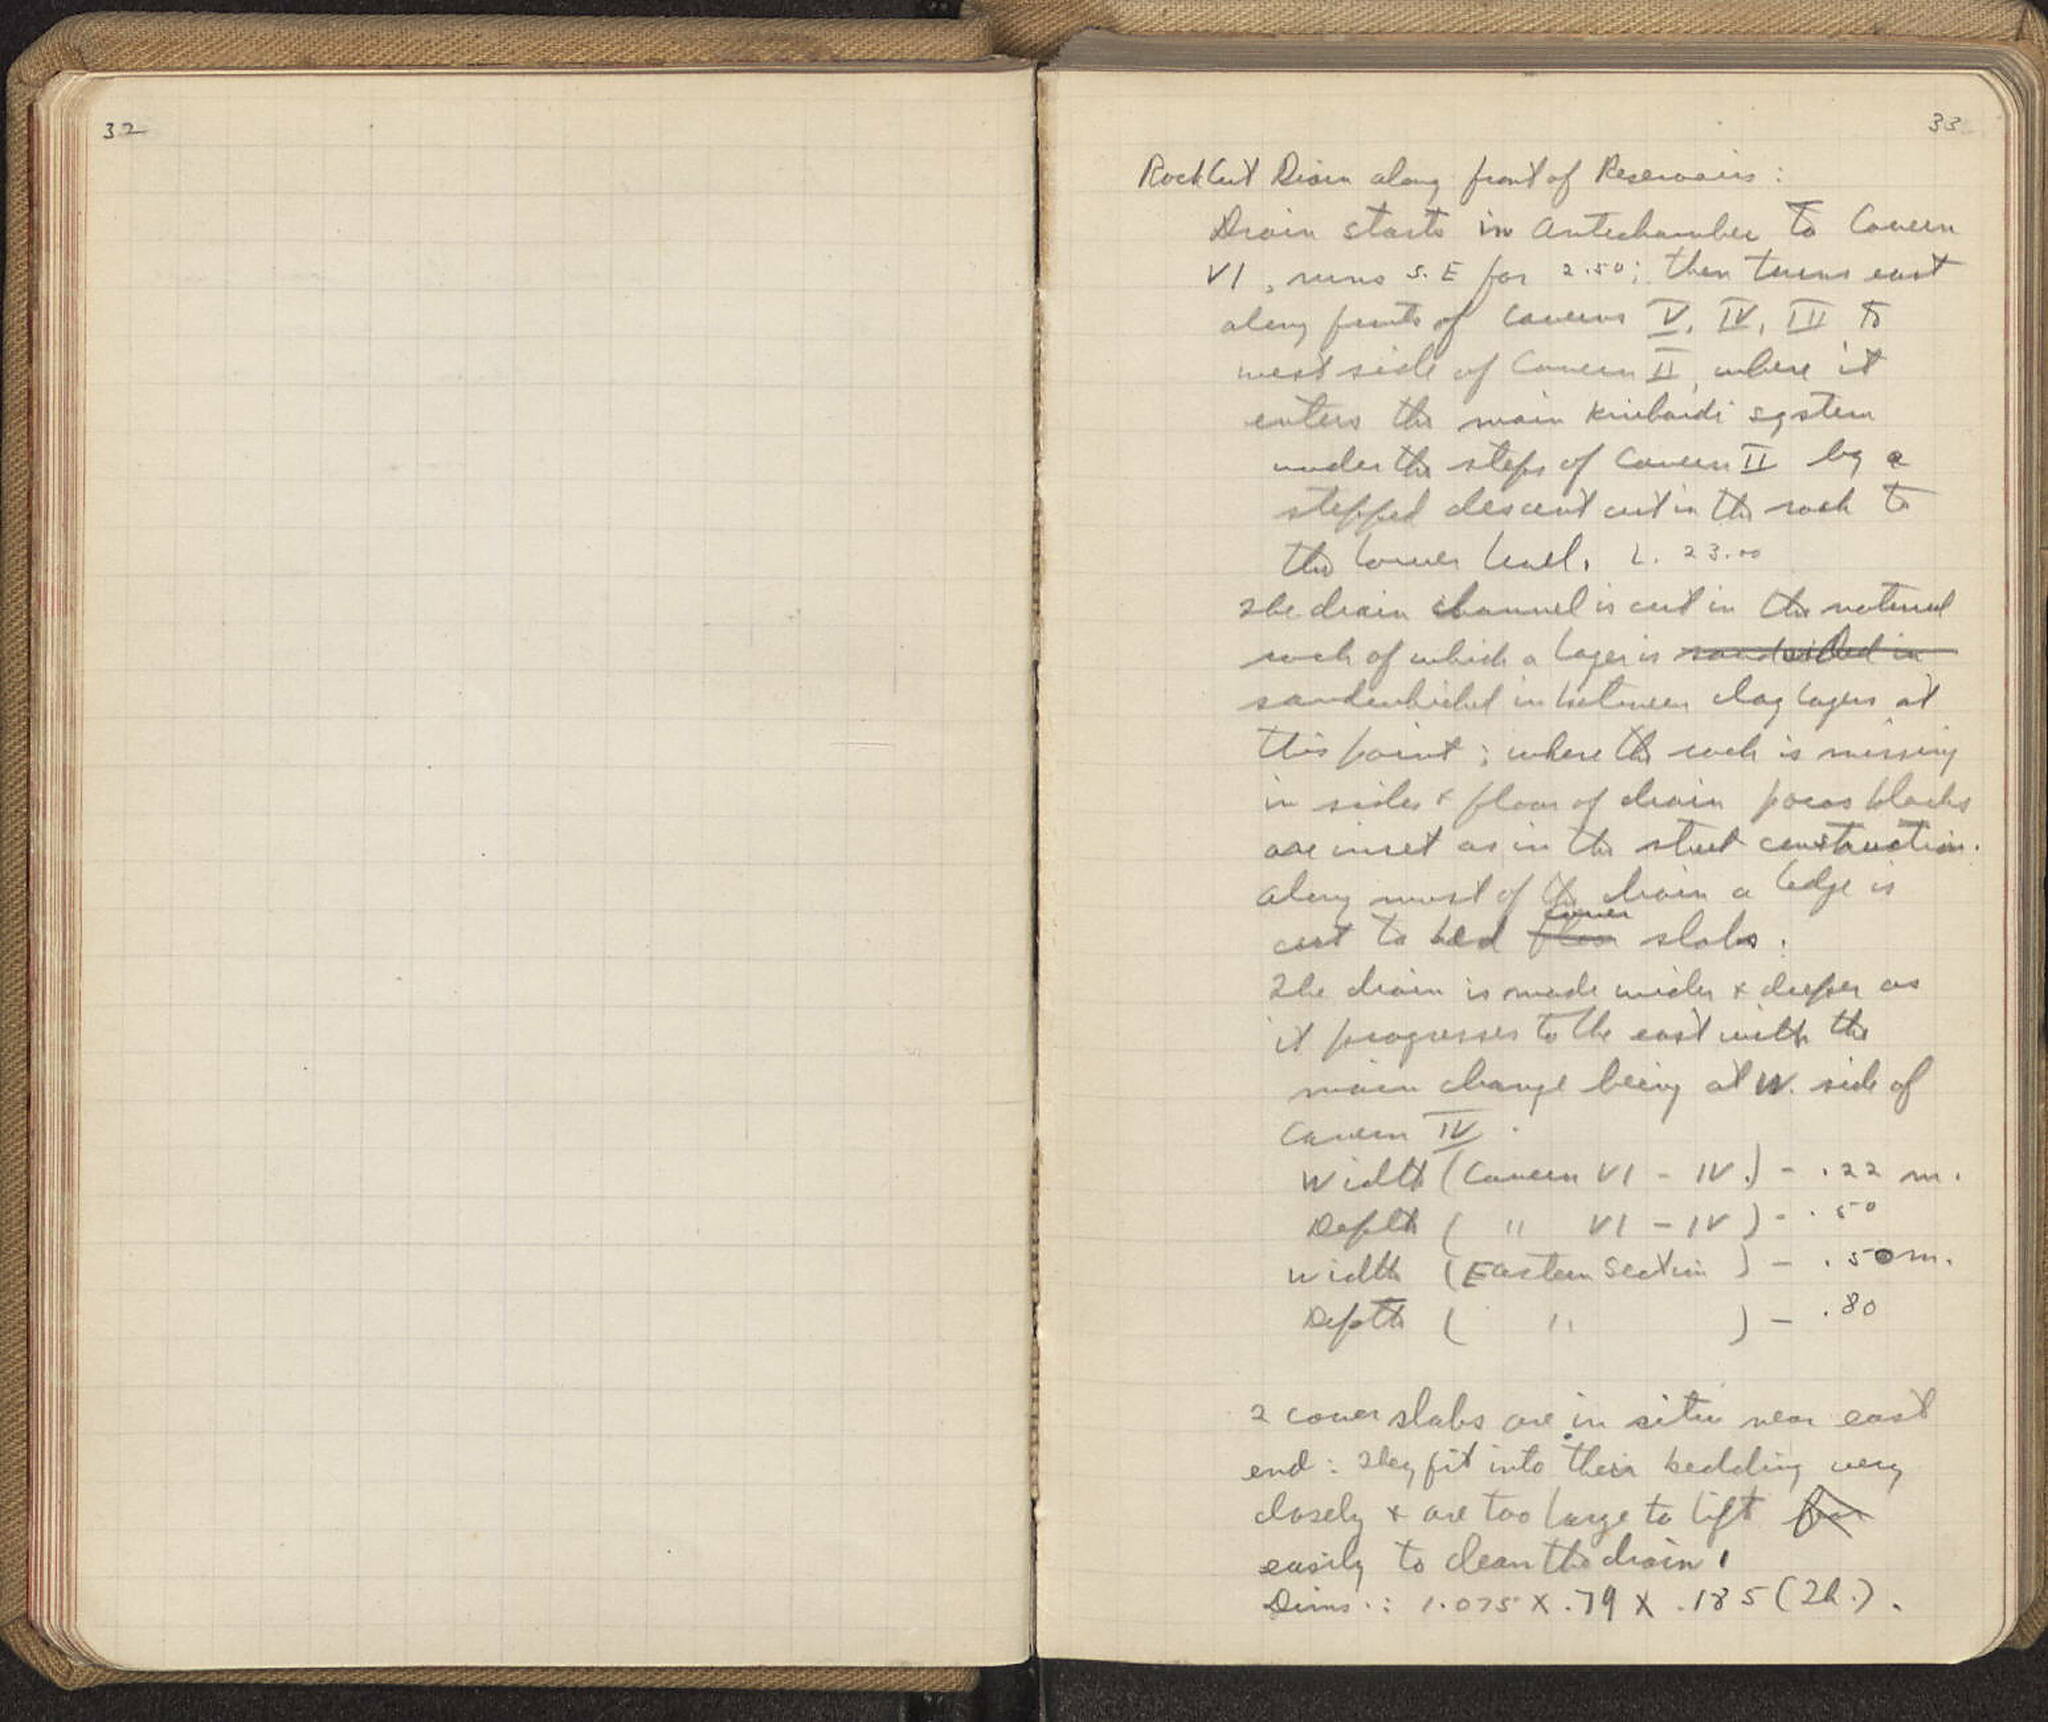 32
33
Rock Cut Drain along front of Reservoirs:
Drain starts in Antechamber to Cavern
VI, runs S.E for 2.50; then turns east
along fronts of Caverns V, IV, III to
west side of Cavern II, where it
enters the main system
under the steps of Cavern II by a
stepped descent cut in the rock to
the lower level. L. 23.00
The drain channel is cut in the natural
rock of which a layer is sandwiched in
sandwhiched in between clay layers at
this point; where the rock is missing
in sides + floor of drain poros blocks
are inset as in the street construction.
Along most of the drain a ledge is
cover
cut to bed floor slabs.
The drain is made wider + deeper as
it progresses to the east with the
main change being at W. side of
Cavern IV.
Width (Cavern VI - IV.) - .22 m.
Depth ( " VI - IV ) - .50
Width (Eastern Section ) - .50 m.
Depth ( " ) - .80
2 cover slabs are in situ near east
end: They fit into their bedding very
closely + are too large to lift for
easily to clean the drain.
Dims.: 1.075 X .79 X .185 (Th.).